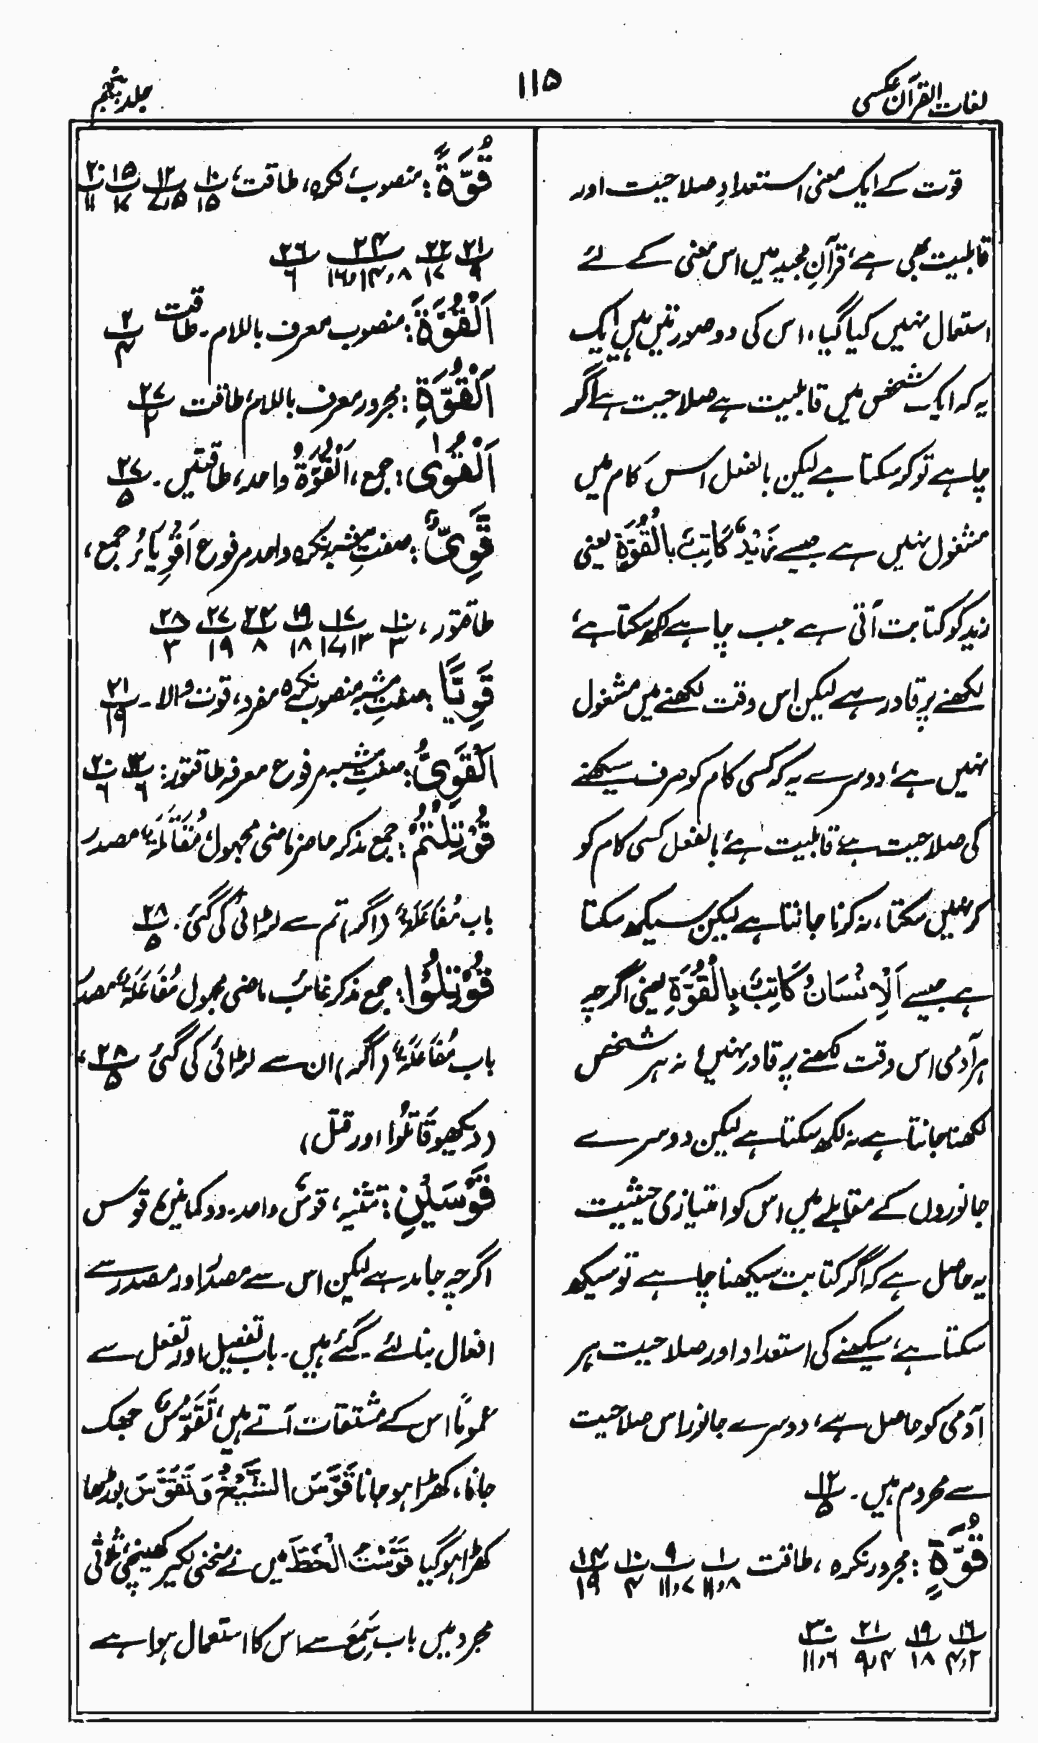 لغات القرآن عکسی
۱۱۵
جلد پنجم
قوت کے ایک معنی استعدادِ صلاحیت اور
قابلیت بھی ہے، قرآنِ مجید میں اس معنی کے لئے
استعمال نہیں کیا گیا، اس کی دو صورتیں ہیں ایک
یہ کہ ایک شخص میں قابلیت ہے صلاحیت ہے اگر
چاہے تو کر سکتا ہے لیکن بالفعل اس کام میں
مشغول نہیں ہے جیسے زَیْدٌ کَاتِبٌ بِالْقُوَّۃِ یعنی
زید کو کتابت آتی ہے جب چاہے لکھ سکتا ہے،
لکھنے پر قادر ہے لیکن اس وقت لکھنے میں مشغول
نہیں ہے، دوسرے یہ کہ کسی کام کو صرف سیکھنے
کی صلاحیت ہے قابلیت ہے، بالفعل کسی کام کو
کر نہیں سکتا، نہ کرنا جانتا ہے لیکن سیکھ سکتا
ہے جیسے اَلْاِنْسَانُ کَاتِبٌ بِالْقُوَّۃِ یعنی اگرچہ
ہر آدمی اس وقت لکھنے پر قادر نہیں، نہ ہر شخص
لکھنا جانتا ہے نہ لکھ سکتا ہے لیکن دوسرے
جانوروں کے مقابلے میں اس کو امتیازی حیثیت
یہ حاصل ہے کہ اگر کتابت سیکھنا چاہے تو سیکھ
سکتا ہے، سیکھنے کی استعداد اور صلاحیت ہر
آدمی کو حاصل ہے، دوسرے جانور اس صلاحیت
سے محروم ہیں۔ ۱۲/۵
قُوَّۃٍ: مجرور نکرہ، طاقت ۱/۸، ۱۱ ۹/۷، ۱۱ ۱۰/۴ ۱۴/۱۹
۱۶/۲، ۴ ۱۹/۱۸ ۲۱/۴، ۹ ۳۰/۶، ۱۱
قُوَّۃً: منصوب، نکرہ، طاقت، ۱۰/۱۵ ۱۲/۵، ۷ ۱۵/۱۷ ۲۰/۱۱
۲۱/۹ ۲۲/۱۷ ۲۴/۸، ۱۴، ۱۶ ۲۶/۶
اَلْقُوَّۃَ: منصوب معرف باللام۔ طاقت ۲/۴
اَلْقُوَّۃِ: مجرور معرف باللام، طاقت ۲۷/۲
اَلْقُوٰی: جمع، اَلْقُوَّۃُ واحد، طاقتیں۔ ۲۷/۵
قَوِیٌّ: صفت مشبہ نکرہ واحد مرفوع اَقْوِیَاءُ جمع،
طاقتور، ۱۰/۳ ۱۷/۱۳، ۱۷ ۱۹/۱۸ ۲۴/۸ ۲۷/۱۹ ۲۸/۳
قَوِیًّا: صفت مشبہ منصوب نکرہ مفرد، قوت والا۔ ۲۱/۱۹
اَلْقَوِیُّ: صفت مشبہ مرفوع معرفہ طاقتور: ۱۲/۶ ۲۰/۶
قُوْتِلْتُمْ: جمع مذکر حاضر ماضی مجہول، مُقَاتَلَۃٌ مصدر
باب مُفَاعَلَۃٌ (اگر) تم سے لڑائی کی گئی۔ ۲۸/۵
قُوْتِلُوْا: جمع مذکر غائب ماضی مجہول مُفَاعَلَۃٌ مصدر
باب مُفَاعَلَۃٌ (اگر) ان سے لڑائی کی گئی ۲۸/۵،
(دیکھو قَاتَلُوا اور قتل)
قَوْسَیْنِ: تثنیہ، قوسٌ واحد۔ دو کمانیں، قوس
اگرچہ جامد ہے لیکن اس سے مصدر اور مصدر سے
افعال بنائے گئے ہیں۔ باب تفعیل اور تفعل سے
عموماً اس کے مشتقات آتے ہیں، تَقَوُّسٌ جھک
جانا، کھڑا ہو جانا قَوَّسَ الشَّیْخُ وَ تَقَوَّسَ بوڑھا
کھڑا ہو گیا قَوَّسْتُ الْخَطَّ میں نے منحنی لکیر کھینچی، ثلاثی
مجرد میں باب سَمِعَ سے اس کا استعمال ہوا ہے